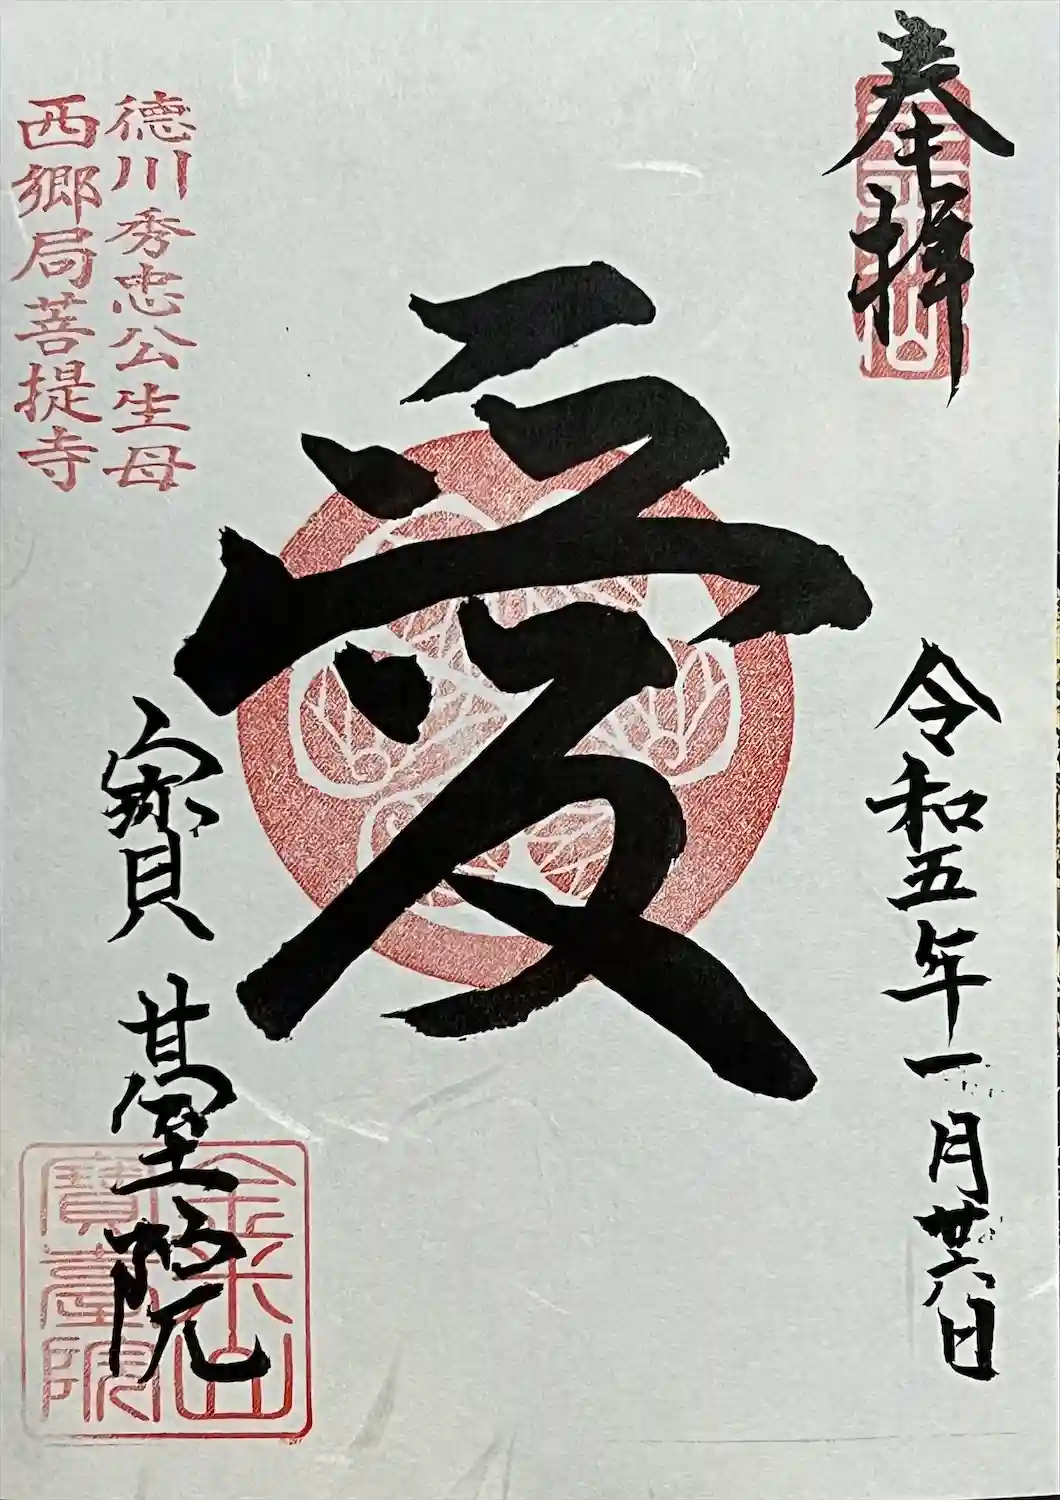 奉拝
金米山
令和五年一月廿六日
愛
德川秀忠公生母
西郷局菩提寺
寳臺院
金米山
寳臺院